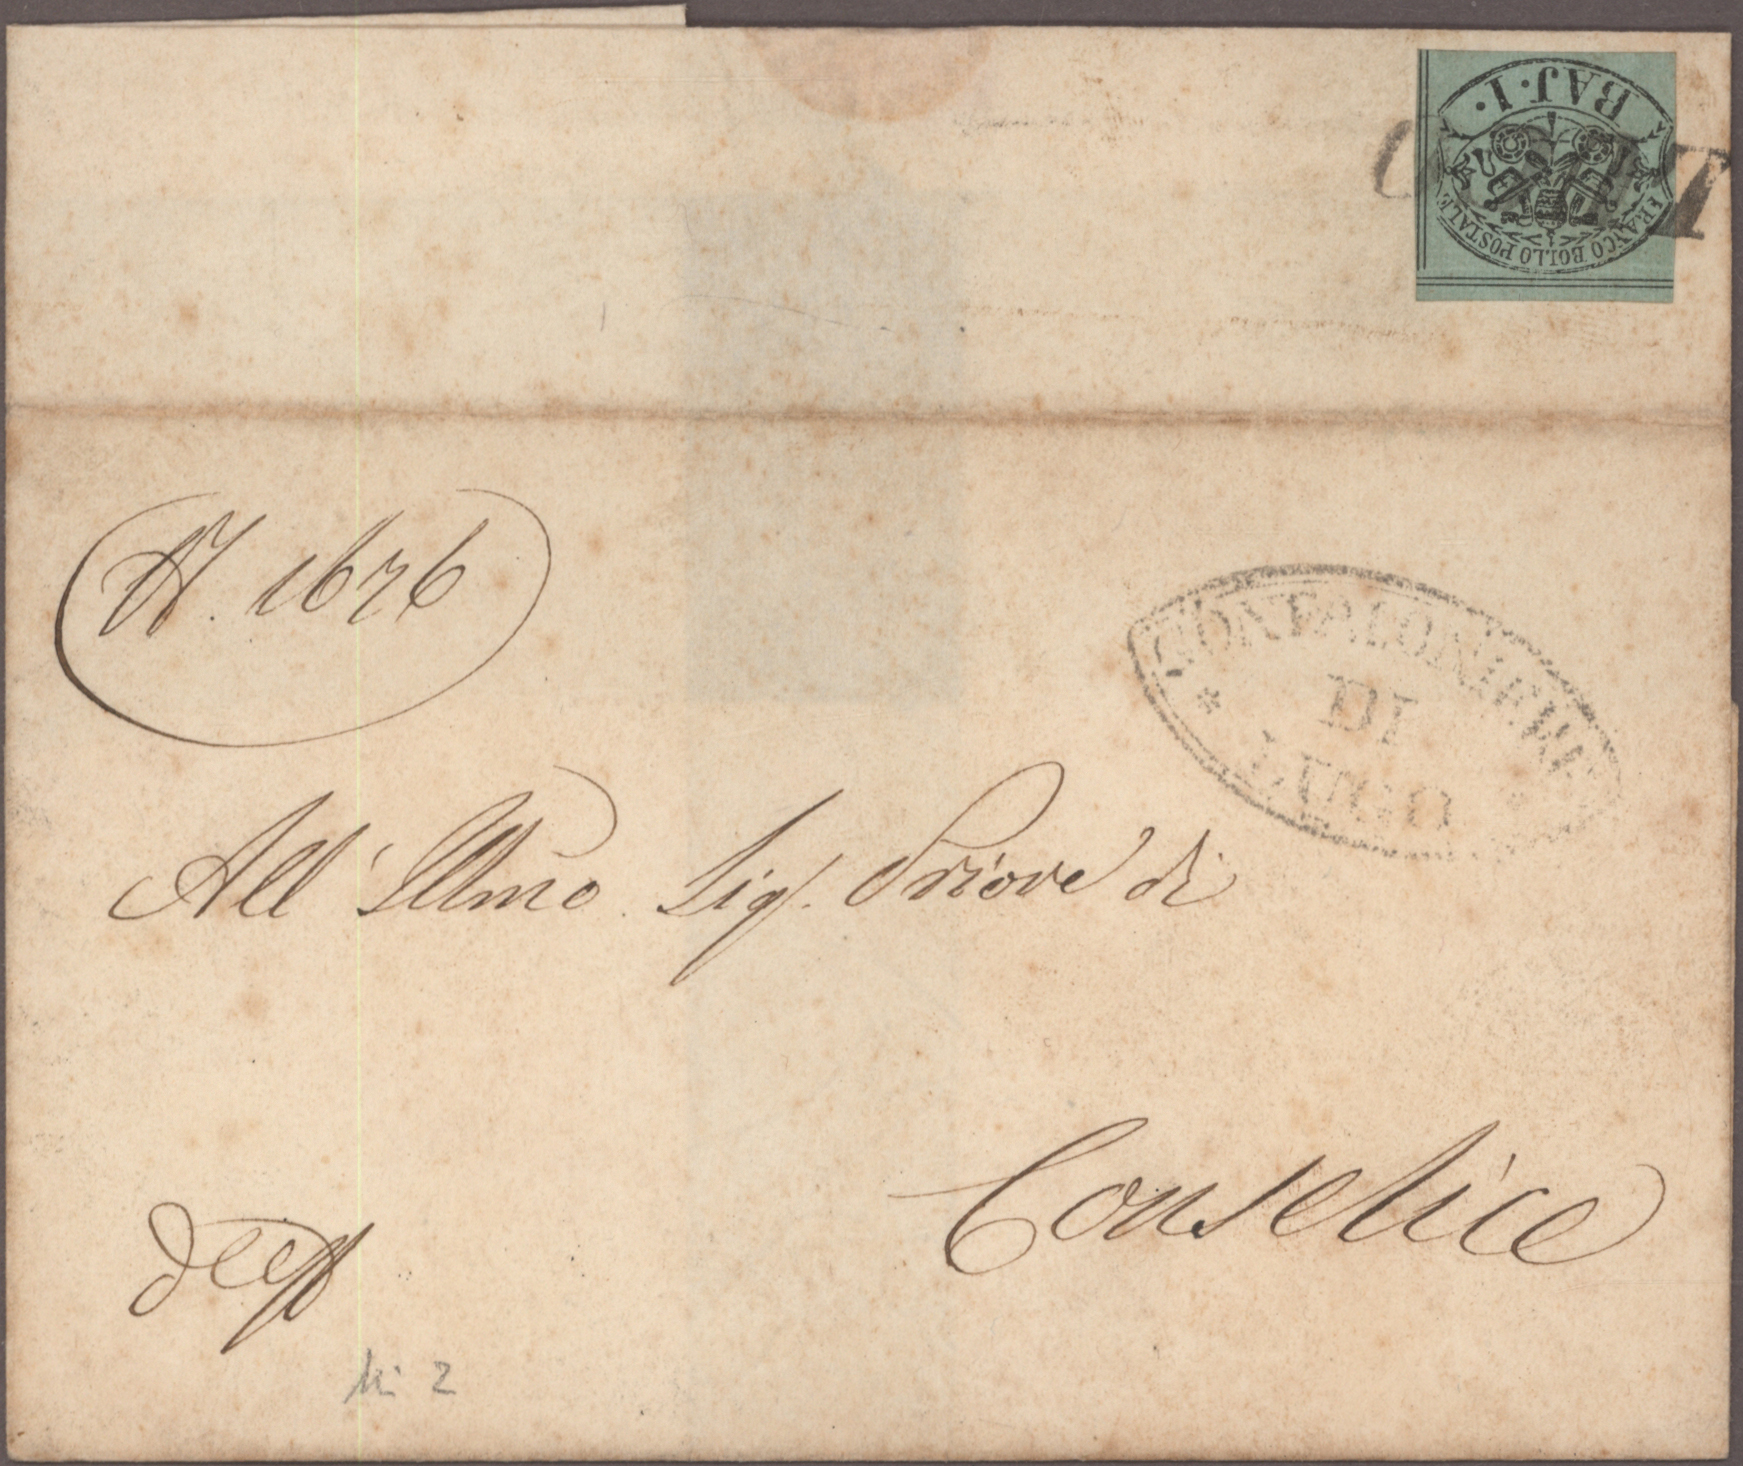 BAJ. I.
FRANCO BOLLO POSTALE
N. 1676
GONFALONIERE
DI
LUGO
All' Illmo. Sig. Priore di
Conselice
Mi 2